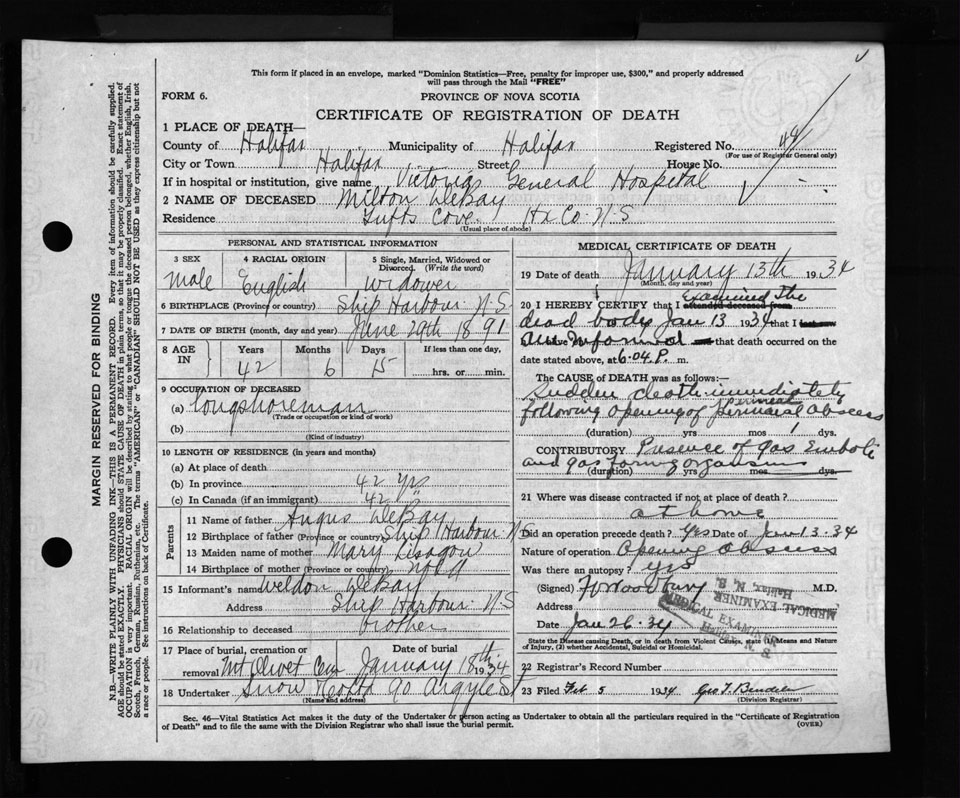 This form if placed in an envelope, marked "Dominion Statistics—Free, penalty for improper use, $300," and properly addressed
will pass through the Mail "FREE"
FORM 6.
PROVINCE OF NOVA SCOTIA
CERTIFICATE OF REGISTRATION OF DEATH
1 PLACE OF DEATH—
County of Halifax Municipality of Halifax Registered No. 49
(For use of Registrar General only)
City or Town Halifax Street House No.
If in hospital or institution, give name Victoria General Hospital
2 NAME OF DECEASED Milton DeBay
Residence Tufts Cove. Hx Co. N.S
(Usual place of abode)
PERSONAL AND STATISTICAL INFORMATION
3 SEX 4 RACIAL ORIGIN 5 Single, Married, Widowed or
Divorced. (Write the word)
male English Widower
6 BIRTHPLACE (Province or country) Ship Harbour N.S
7 DATE OF BIRTH (month, day and year) June 29th 1891
8 AGE IN Years Months Days If less than one day,
42 6 15 hrs. or min.
9 OCCUPATION OF DECEASED
(a) Longshoreman
(Trade or occupation or kind of work)
(b)
(Kind of industry)
10 LENGTH OF RESIDENCE (in years and months)
(a) At place of death
(b) In province 42 yrs
(c) In Canada (if an immigrant) 42 "
Parents
11 Name of father Angus DeBay
12 Birthplace of father (Province or country) Ship Harbour N.S
13 Maiden name of mother Mary
14 Birthplace of mother (Province or country)
15 Informant's name Weldon DeBay
Address Ship Harbour N.S
16 Relationship to deceased brother
17 Place of burial, cremation or removal Date of burial
Mt Olivet Cem January 18th 1934
18 Undertaker Snow 90 Argyle St
(Name and address)
MEDICAL CERTIFICATE OF DEATH
19 Date of death January 13th 1934
(Month, day and year)
20 I HEREBY CERTIFY that I attended deceased from Examined the
dead body Jan 13 1934 that I last saw
am informed that death occurred on
date stated above, at 6:04 P. m.
The CAUSE OF DEATH was as follows:—
Sudden death immediately
following opening of perineal abscess
(duration) yrs mos 1 dys.
CONTRIBUTORY Presence of gas Emboli
and gas forming organisms
(duration) yrs mos dys.
21 Where was disease contracted if not at place of death?
at home
Did an operation precede death? Yes Date of Jan 13.34
Nature of operation Opening Abscess
Was there an autopsy? yes
(Signed) Woodbury M.D.
Address
MEDICAL EXAMINER
Halifax, N. S.
Date Jan 26.34
State the Disease causing Death, or in death from Violent Causes, state (1) Means and Nature
of Injury, (2) whether Accidental, Suicidal or Homicidal.
22 Registrar's Record Number
23 Filed Feb 5 1934 Geo T.
(Division Registrar)
Sec. 46—Vital Statistics Act makes it the duty of the Undertaker or person acting as Undertaker to obtain all the particulars required in the "Certificate of Registration
of Death" and to file the same with the Division Registrar who shall issue the burial permit.
(OVER)
MARGIN RESERVED FOR BINDING
N.B.—WRITE PLAINLY WITH UNFADING INK—THIS IS A PERMANENT RECORD. Every item of information should be carefully supplied.
AGE should be stated EXACTLY. PHYSICIANS should STATE CAUSE OF DEATH in plain terms, so that it may be properly classified. Exact statement of
OCCUPATION is very important. RACIAL ORIGIN will be described by stating to what people or tongue the deceased person belonged, whether English, Irish,
Scotch, French, German, Russian, Ruthenian, etc. The terms "AMERICAN" or "CANADIAN" SHOULD NOT BE USED as they express citizenship but not
a race or people. See instructions on back of Certificate.